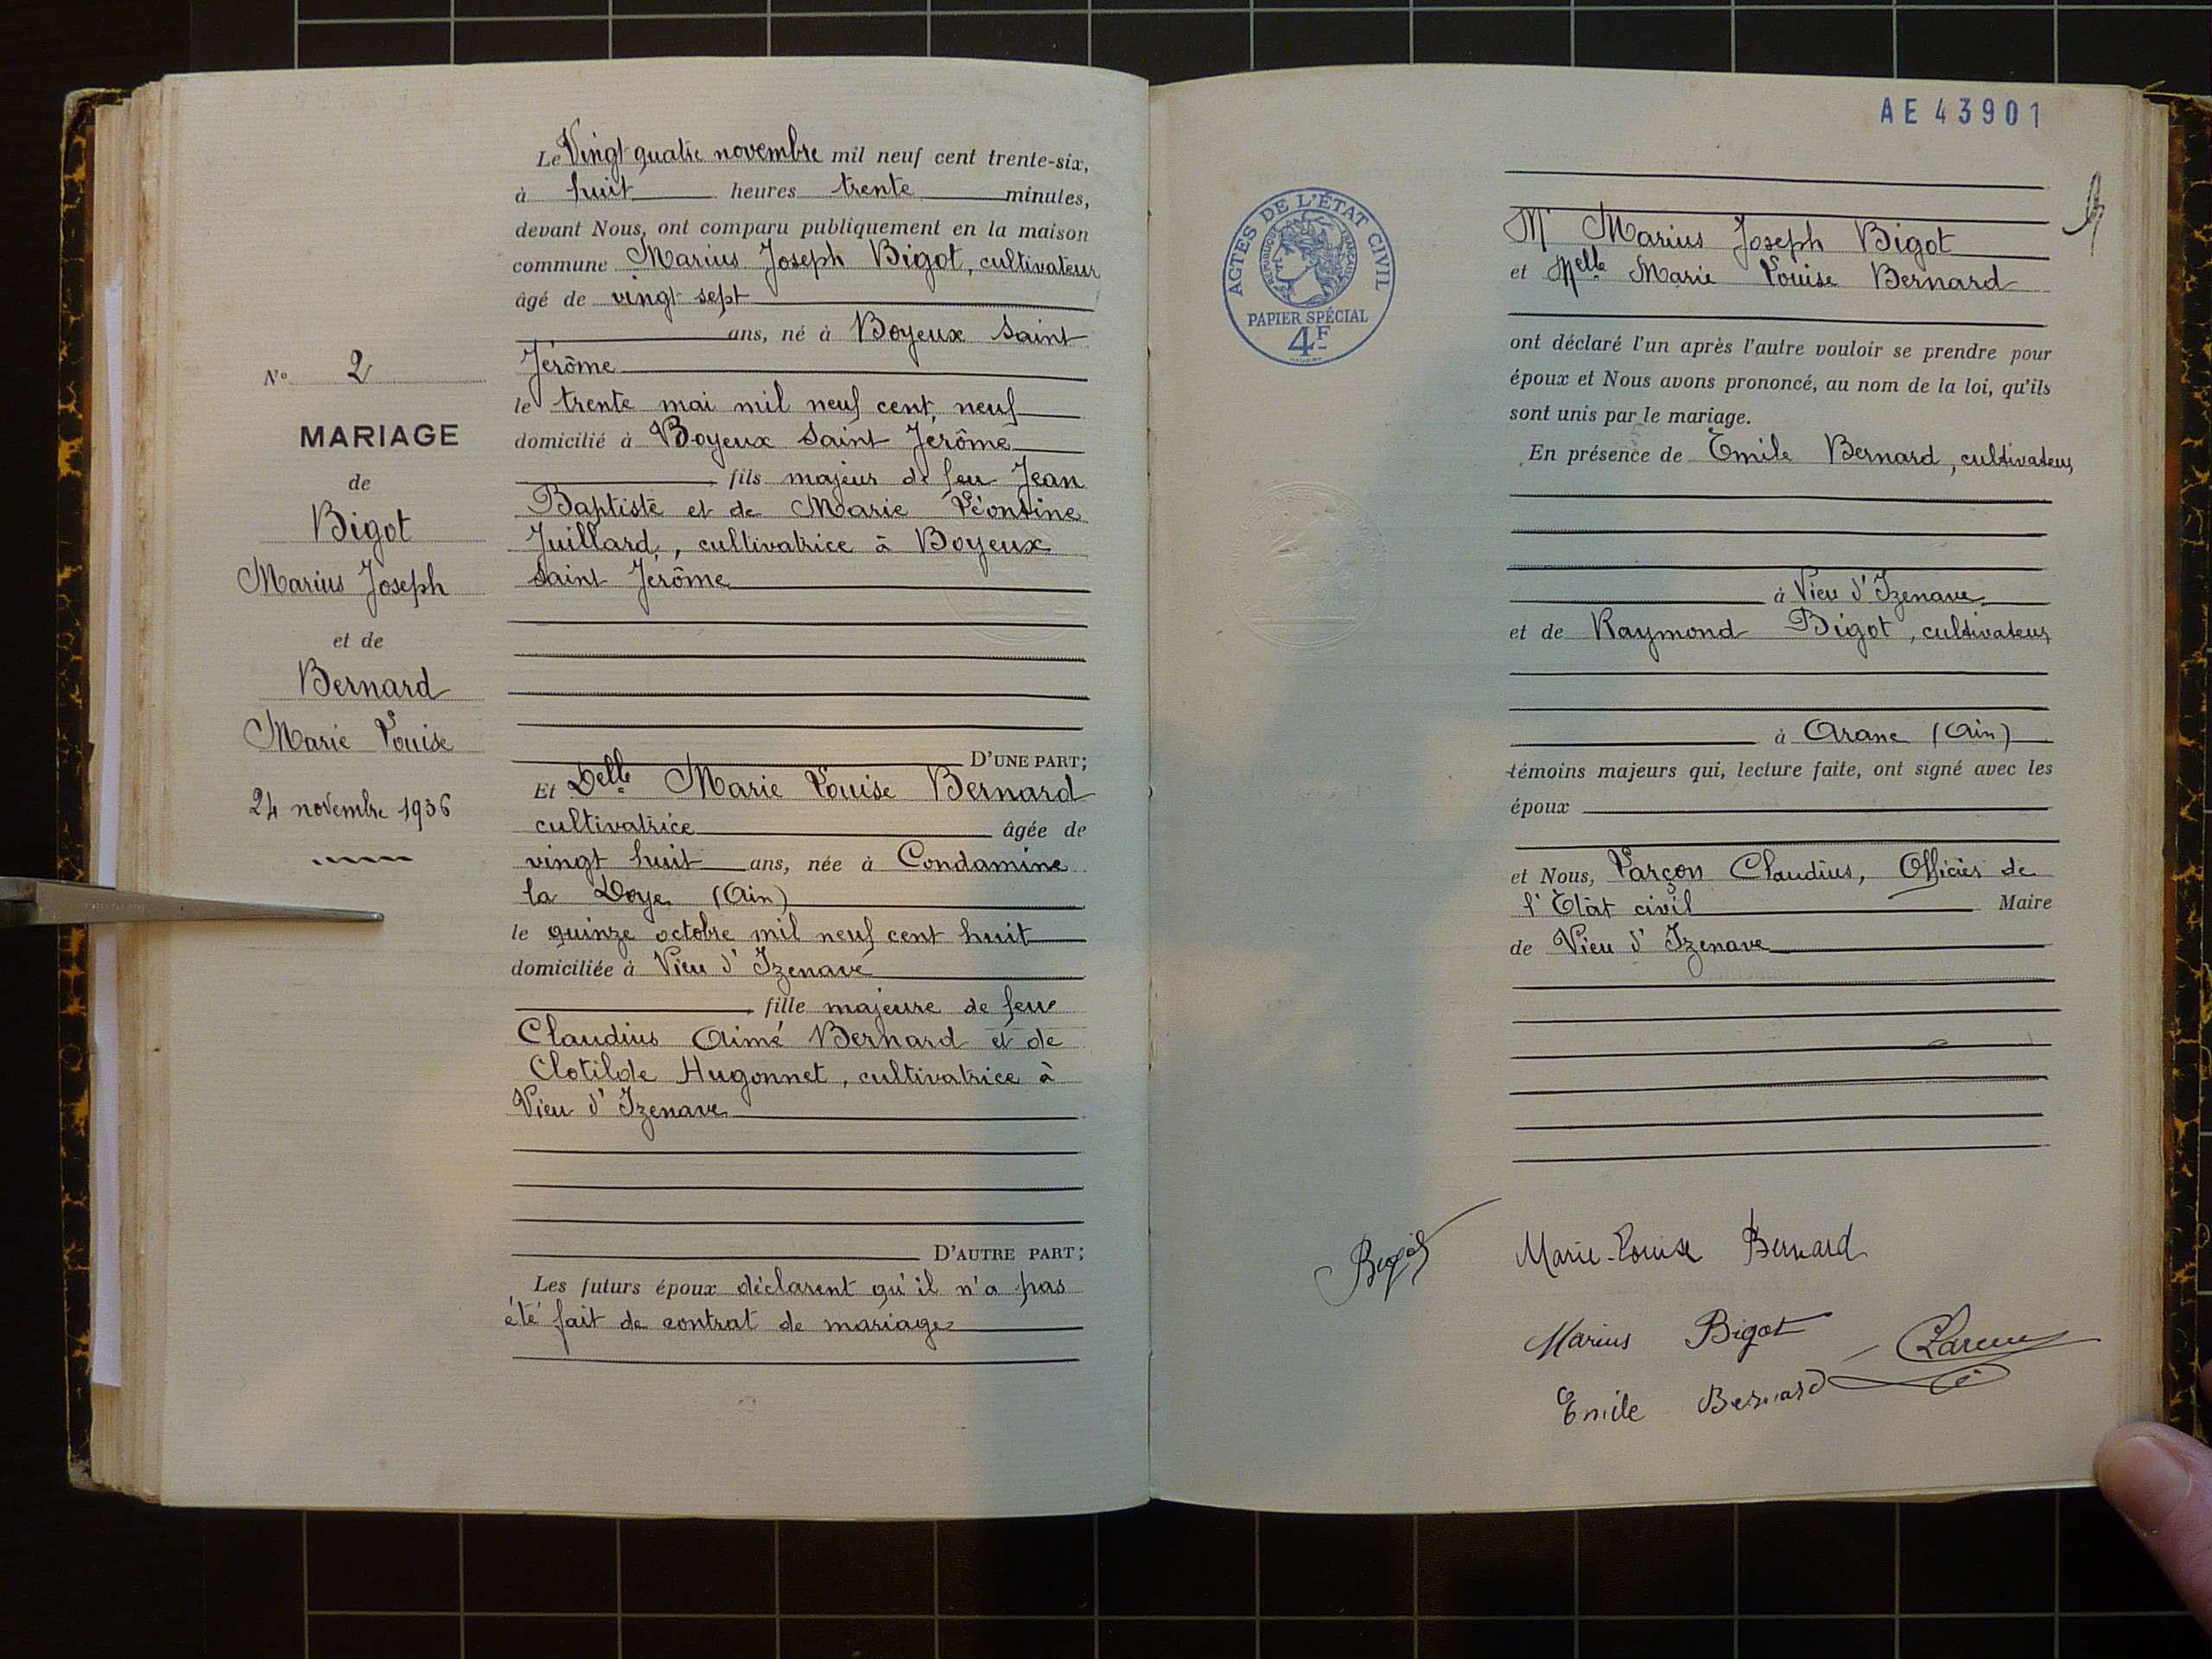 Le Vingt quatre novembre mil neuf cent trente-six,
à huit heures trente minutes,
devant Nous, ont comparu publiquement en la maison
commune Marius Joseph Bigot, cultivateur
âgé de vingt sept
ans, né à Boyeux Saint
Jérôme
le trente mai mil neuf cent neuf
domicilié à Boyeux Saint Jérôme
fils majeur de feu Jean
Baptiste et de Marie Léontine
Juillard, cultivatrice à Boyeux
Saint Jérôme
D'UNE PART;
Et Delle Marie Louise Bernard
cultivatrice âgée de
vingt huit ans, née à Condamine
la Doye (Ain)
le quinze octobre mil neuf cent huit
domiciliée à Vieu d'Izenave
fille majeure de feu
Claudius Aimé Bernard et de
Clotilde Hugonnet, cultivatrice à
Vieu d'Izenave
D'AUTRE PART;
Les futurs époux déclarent qu'il n'a pas
été fait de contrat de mariage
N° 2
MARIAGE
de
Bigot
Marius Joseph
et de
Bernard
Marie Louise
24 novembre 1936
AE 43901
ACTES DE L'ÉTAT CIVIL
RÉPUBLIQUE FRANÇAISE
PAPIER SPÉCIAL
4F
Mr Marius Joseph Bigot
et Melle Marie Louise Bernard
ont déclaré l'un après l'autre vouloir se prendre pour
époux et Nous avons prononcé, au nom de la loi, qu'ils
sont unis par le mariage.
En présence de Emile Bernard, cultivateur
à Vieu d'Izenave
et de Raymond Bigot, cultivateur
à Aranc (Ain)
témoins majeurs qui, lecture faite, ont signé avec les
époux
et Nous, Larçon Claudius, Officier de
l'Etat civil Maire
de Vieu d'Izenave
Bigot Marie-Louise Bernard
Marius Bigot
Emile Bernard